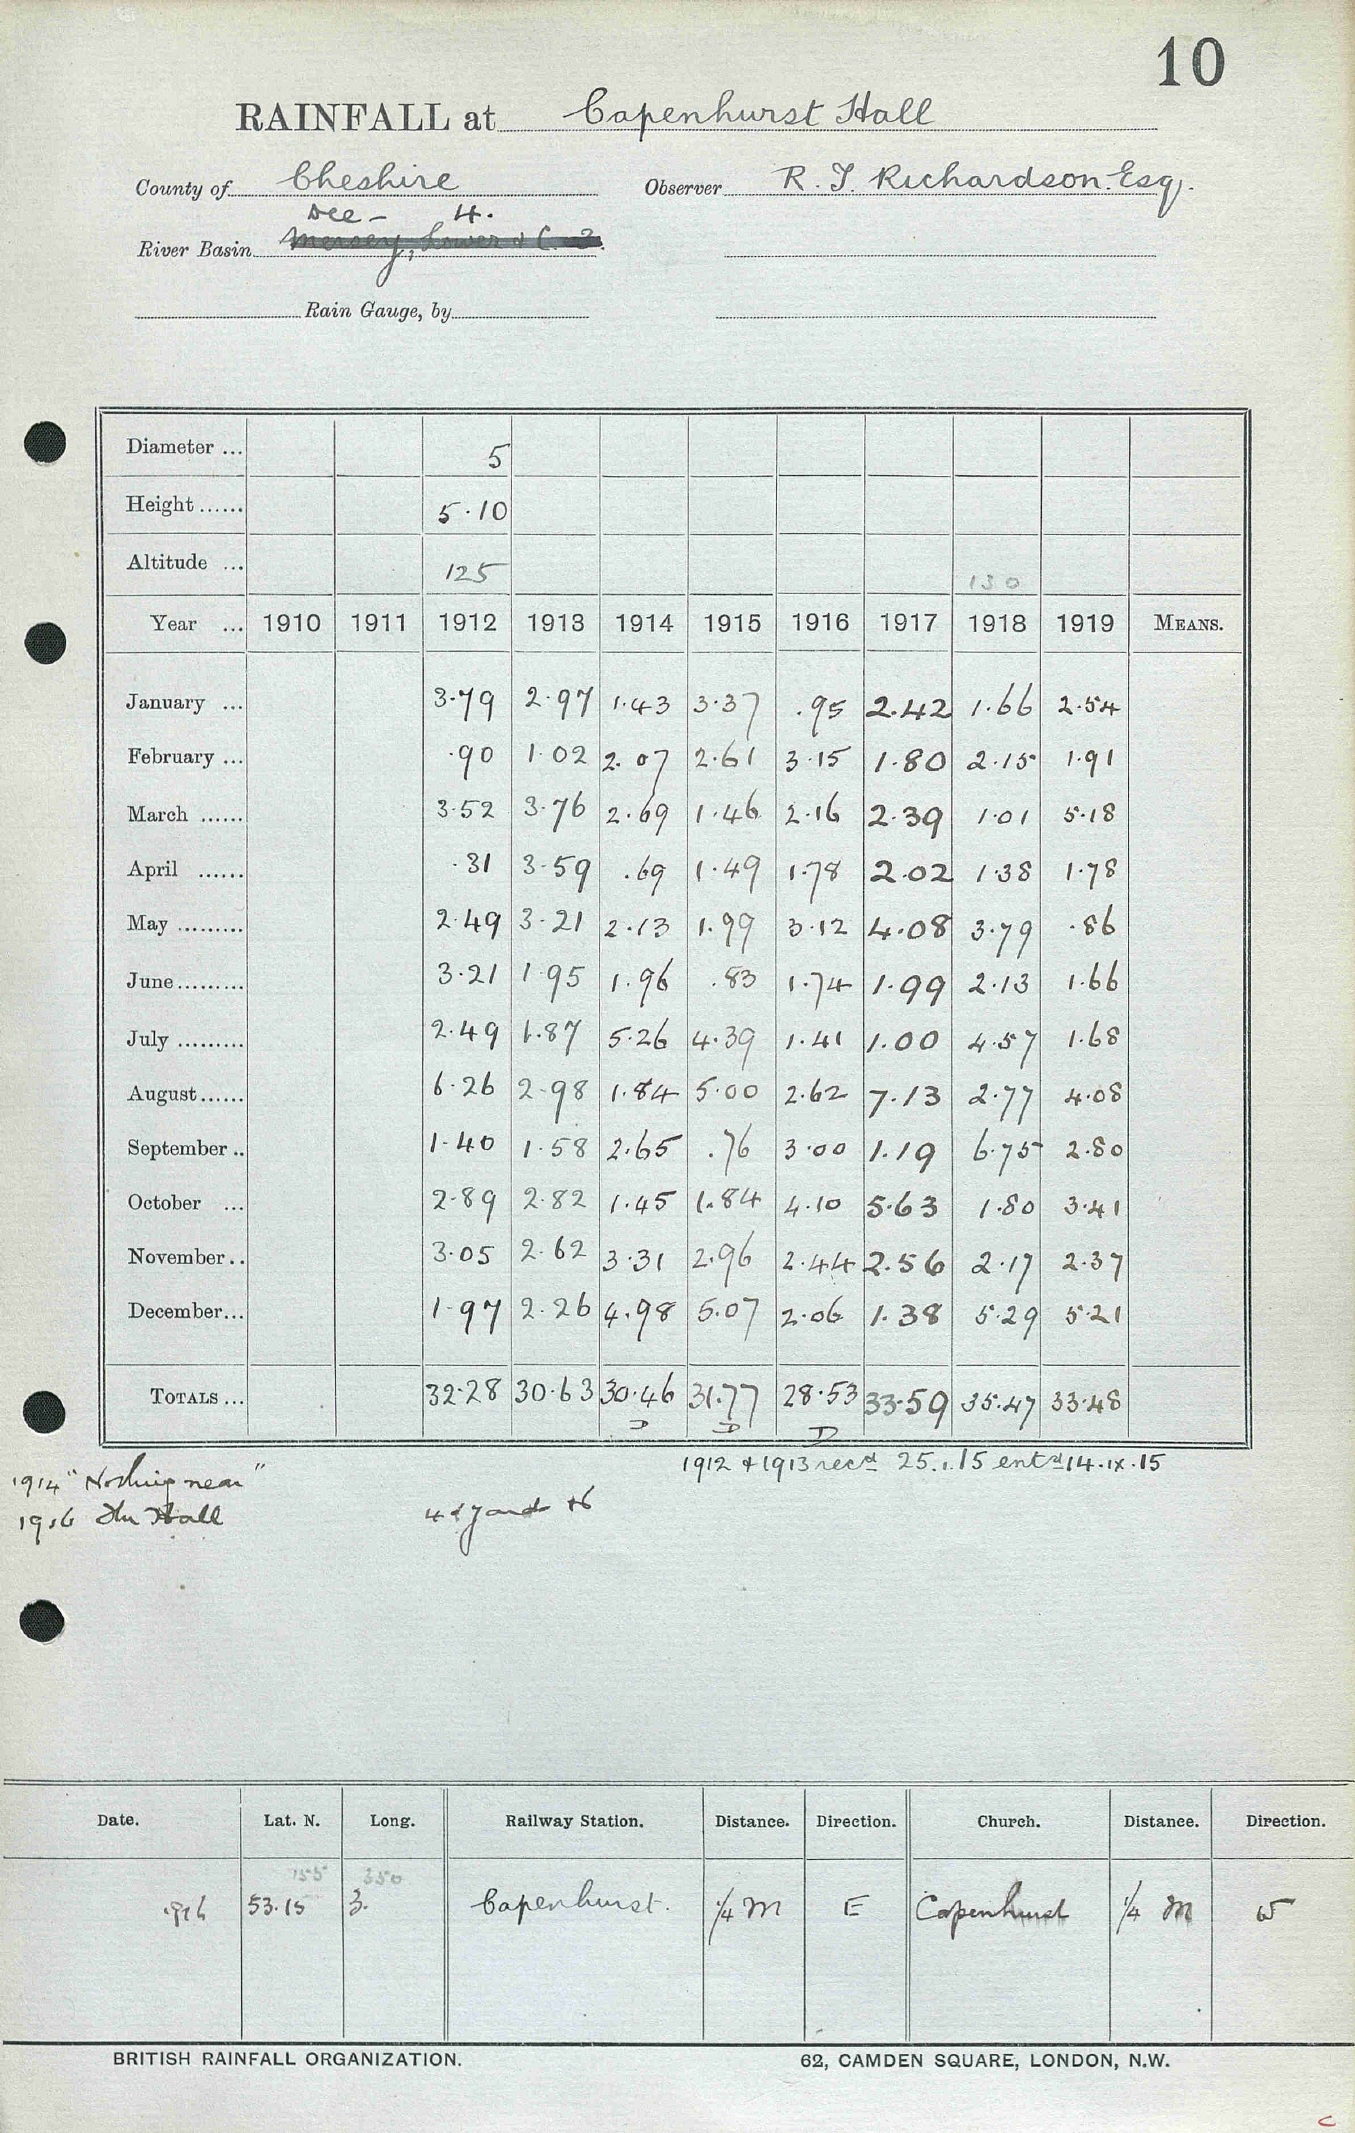 10
RAINFALL at Capenhurst Hall
County of Cheshire Observer R. J. Richardson Esq.
Dee - 4.
River Basin Mersey, Lower & C. 3.
Rain Gauge, by
Diameter ... 5
Height ...... 5.10
Altitude ... 125 130
Year ... 1910 1911 1912 1913 1914 1915 1916 1917 1918 1919 MEANS.
January ... 3.79 2.97 1.43 3.37 .95 2.42 1.66 2.54
February ... .90 1.02 2.07 2.61 3.15 1.80 2.15 1.91
March ...... 3.52 3.76 2.69 1.46 2.16 2.39 1.01 5.18
April ...... .31 3.59 .69 1.49 1.78 2.02 1.38 1.78
May ......... 2.49 3.21 2.13 1.99 3.12 4.08 3.79 .86
June ......... 3.21 1.95 1.96 .83 1.74 1.99 2.13 1.66
July ......... 2.49 1.87 5.26 4.39 1.41 1.00 4.57 1.68
August ...... 6.26 2.98 1.84 5.00 2.62 7.13 2.77 4.08
September .. 1.40 1.58 2.65 .76 3.00 1.19 6.75 2.80
October ... 2.89 2.82 1.45 1.84 4.10 5.63 1.80 3.41
November .. 3.05 2.62 3.31 2.96 2.44 2.56 2.17 2.37
December ... 1.97 2.26 4.98 5.07 2.06 1.38 5.29 5.21
TOTALS ... 32.28 30.63 30.46 31.77 28.53 33.59 35.47 33.48
D D D
1912 & 1913 recd 25.1.15 entd 14.IX.15
1914 "Nothing near"
1916 The Hall
Date. Lat. N. Long. Railway Station. Distance. Direction. Church. Distance. Direction.
155 350
1916 53.15 3. Capenhurst. 1/4 M E Capenhurst 1/4 M W
BRITISH RAINFALL ORGANIZATION. 62, CAMDEN SQUARE, LONDON, N.W.
c